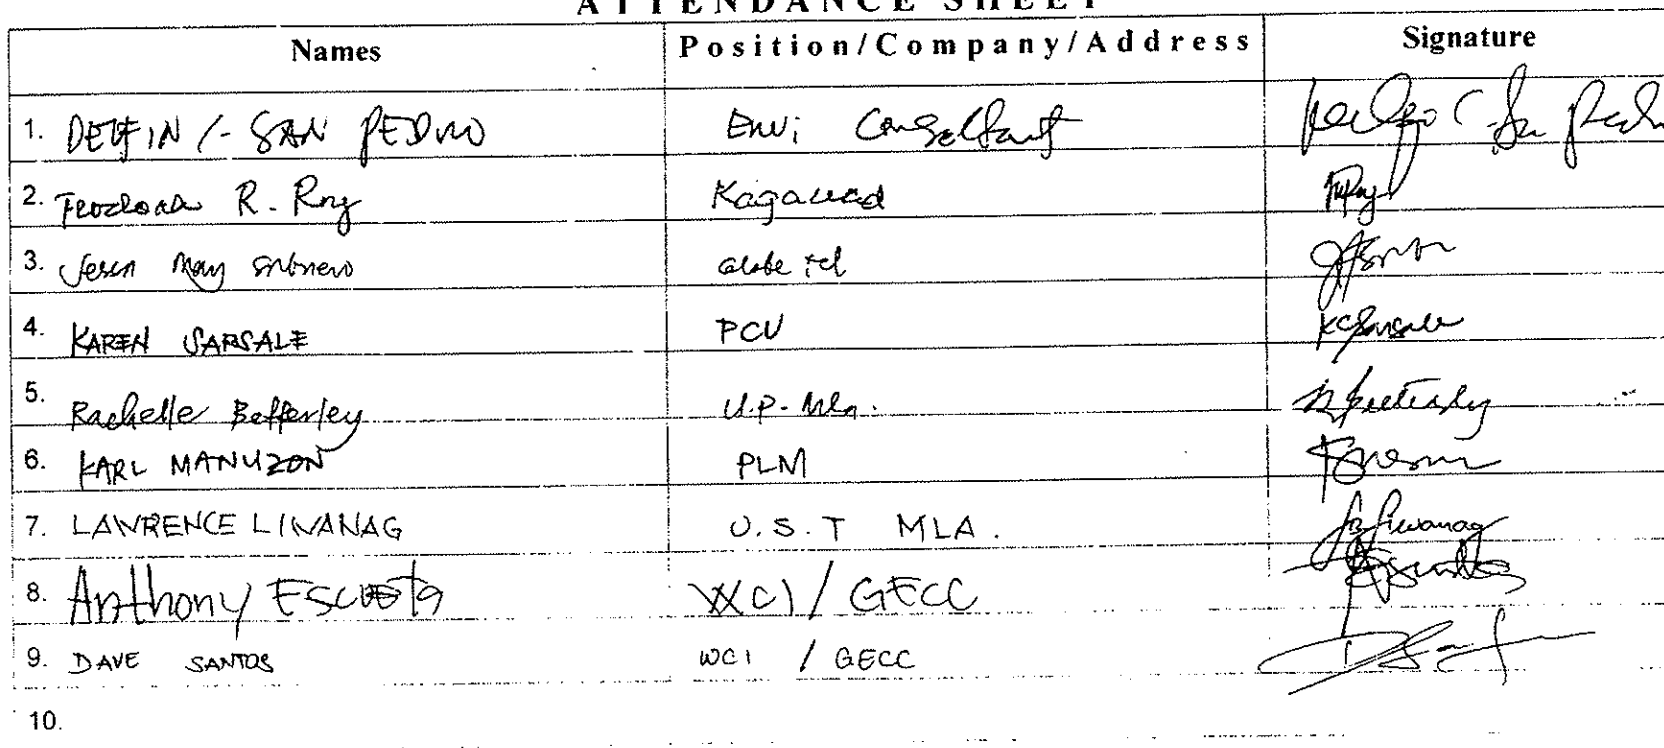 ATTENDANCE SHEET
Names Position/Company/Address Signature
1. DELFIN C. SAN PEDRO Envi Consultant
2. R. Roy Kagawad
3. May Globe tel
4. KAREN SARSALE PCU KCSarsale
5. Rachelle Befferley U.P. Mla.
6. KARL MANUZON PLM
7. LAWRENCE LIWANAG U.S.T MLA. Liwanag
8. Anthony Escueta WCI/GECC
9. DAVE SANTOS WCI / GECC
10.